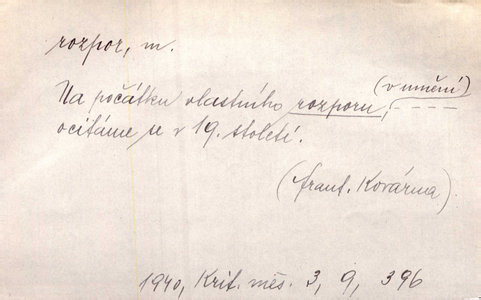 rozpor, m.
(v umění)
Na počátku vlastního rozporu,
ocitáme se v 19. století.
(Frant. Kovárna)
1940, Krit. měs. 3, 9, 396